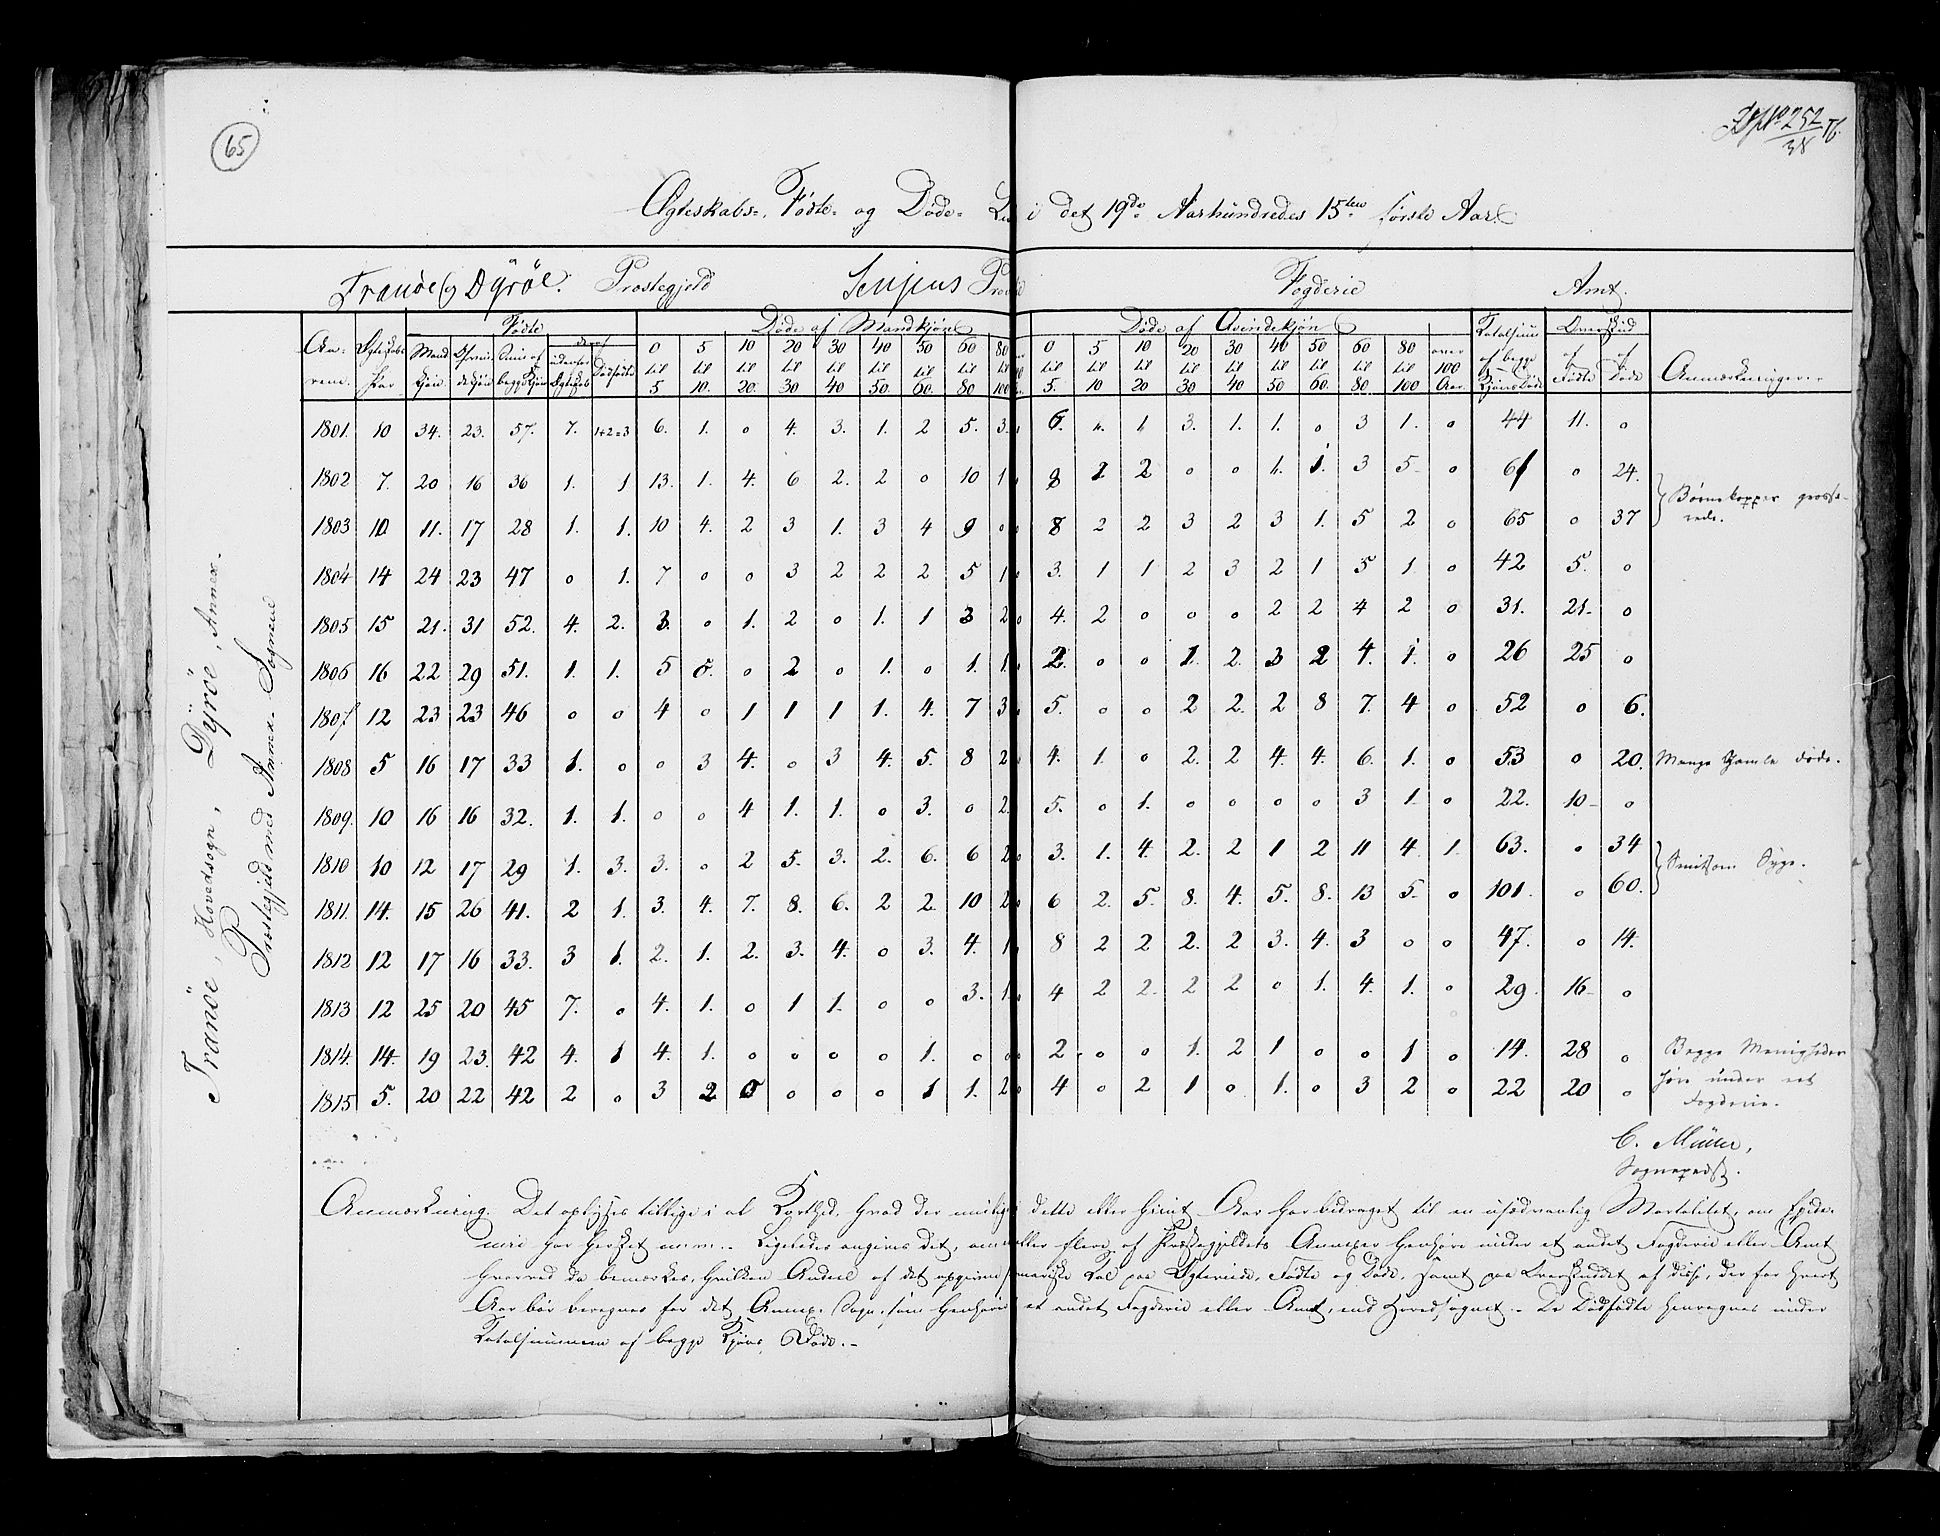 65
252
38
Ægteskabs-, Fødte- og Døde- i det 19de Aarhundredes 15ten første Aar.
Tranöe og Dÿröe. Præstegjeld Senjens Fogderie Amt.
Fødte Døde af Mandkjøn Døde af Qvindekjøn Totalsum Overskud
Aa- Ægteskabs Mand Qvin- Sum af 0 5 10 20 30 40 50 60 80 0 5 10 20 30 40 50 60 80 over af begge af af
rene. Par kjøn dekjøn begge Kjøn Dødfødte til til til til til til til til til til til til til til til til til til 100 Kjøns Døde Fødte Døde Anmærkninger.
5 10. 20. 30 40 50 60. 80 100 5. 10 20 30 40 50 60. 80 100 Aar.
1801. 10 34. 23. 57. 7. 1+2=3 6. 1. 0 4. 3. 1. 2 5. 3. 6. 1. 3. 1. 1. 0 3 1. 0 44 11. 0
1802 7. 20 16 36 1. 1 13. 1. 4. 6 2. 2 0 10 1 2 2 0 0 1. 3 5 0 61 0 24.
1803 10 11. 17 28 1. 1. 10 4. 2 3 1. 3 4 9 0 8 2 2 3 2 3 1. 5 2 0 65 0 37 Børnekopper grasse-
rede.
1804 14 24 23 47 0 1. 7 0 0 3 2 2 2 5 1 3. 1 1 2 3 2 1 5 1. 0 42 5. 0
1805 15 21. 31 52. 4. 2. 3. 0 1. 2 0 1. 1 3 2 4. 2 0 0 0 2 2 4 2 0 31. 21. 0
1806 16 22 29 51. 1. 1. 5 0. 0 2 0 1. 0 1. 1. 2. 0 0 1. 2. 3 2 4. 1. 0 26 25 0
1807 12 23 23 46 0 0 4 0 1 1 1 1. 4. 7 3 5. 0 0 2 2. 2 8 7. 4 0 52 0 6.
1808 5 16 17 33 1. 0 0 3 4. 0 3 4. 5. 8 2 4. 1. 0 2. 2 4. 4. 6. 1. 0 53 0 20. Mange Gamle døde.
1809. 10 16 16 32. 1. 1. 0 0 4 1. 1. 0 3. 0 2. 5. 0 1. 0 0 0 0 3 1. 0 22. 10 0
1810 10 12 17 29 1. 3. 3. 0 2 5. 3. 2. 6. 6 2 3. 1. 4. 2. 2 1 2 11 4. 1. 63. 0 34 Smitsom Syge.
1811. 14. 15 26 41. 2 1. 3. 4. 7. 8. 6. 2 2. 10 2 6 2. 5. 8. 4. 5. 8. 13 5. 0 101. 0 60.
1812 12 17 16 33. 3 1. 2. 1. 2. 3. 4. 0 3. 4. 1 8 2 2 2. 2 3. 4. 3 0 0 47. 0 14.
1813 12 25 20 45 7. 0 4. 1. 0 1 1. 0 0 3. 1. 4 2 2. 2 2 0 1. 4. 1. 0 29 16 0
1814. 14. 19 23. 42 4. 1 4. 1. 0 0 0 0 1. 0 0 2 0 0 1. 2 1 0 0 1 0 14. 28 0 Begge Menigheder
1815 5. 20 22 42 2 0 3 2 0 0 0 0 1 1. 2 4 0 2 1 0 1. 0 3 2 0 22 20 0 høre under eet
Fogderie.
C. Müller,
Sognepræst.
Tranöe, Hovedsogn, Dÿröe, Annex.
Præstegjeld med Annex-Sognene
Anmærkning. Det oplyses tillige i al Korthed, hvad der muligt i dette eller hiint Aar har bidraget til en usædvanlig Mortalitet, om Epide-
mier har hersket m.m. Ligeledes angives det, om eller flere af Præstegjeldets Annexer henhøre under et andet Fogderie eller Amt
hvorved da bemærkes, hvilken Andeel af det opgivne Tal paa Ægteviede, Fødte og Døde, samt paa Overskuddet af disse, der for hvert
Aar bør beregnes for det Annex-Sogn, som henhører et andet Fogderie eller Amt, end Hovedsognet. De Dødfødte henregnes under
Totalsummen af begge Kjøns Døde.